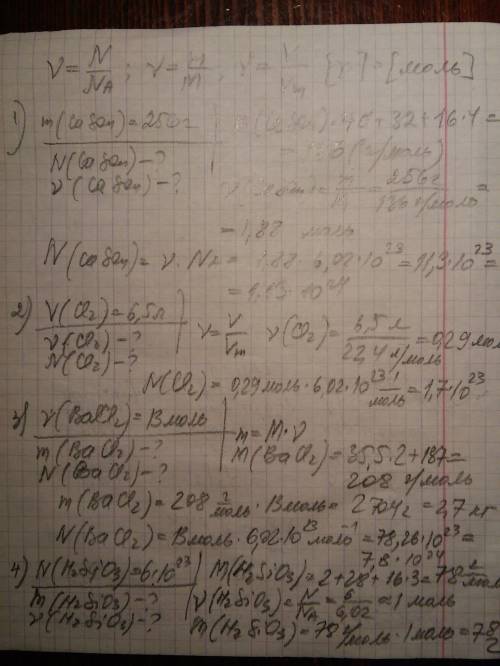 ν = N/N_A ; ν = m/M ; ν = V/V_m [ν] = [моль]
1) m(CaSO₄) = 256г M(CaSO₄) = 40 + 32 + 16·4 =
N(CaSO₄) - ? = 136 (г/моль)
ν(CaSO₄) - ? ν(CaSO₄) = m/M = 256г/136 г/моль =
= 1,88 моль
N(CaSO₄) = ν · N_A = 1,88 · 6,02·10²³ = 11,3·10²³ =
= 1,13·10²⁴
2) V(Cl₂) = 6,5л
ν(Cl₂) - ? ν = V/V_m ν(Cl₂) = 6,5 л/22,4 л/моль = 0,29 моль
N(Cl₂) - ?
N(Cl₂) = 0,29 моль · 6,02·10²³ 1/моль = 1,7·10²³
3) ν(BaCl₂) = 13моль m = M·ν
m(BaCl₂) - ? M(BaCl₂) = 35,5·2 + 137 =
N(BaCl₂) - ? 208 г/моль
m(BaCl₂) = 208 г/моль · 13моль = 2704г = 2,7 кг
N(BaCl₂) = 13моль · 6,02·10²³ моль⁻¹ = 78,26·10²³ =
7,8·10²⁴
4) N(H₂SiO₃) = 6·10²³ M(H₂SiO₃) = 2 + 28 + 16·3 = 78 г/моль
m(H₂SiO₃) - ? ν(H₂SiO₃) = N/N_A = 6/6,02 ≈ 1 моль
ν(H₂SiO₃) - ? m(H₂SiO₃) = 78 г/моль · 1 моль = 78 г